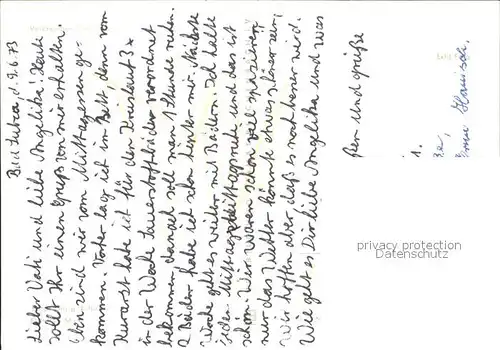 Bad Sulza, d. 9.6.73
Lieber Vati und liebe Angelika! Heute
sollt Ihr einen Gruß von mir erhalten.
Eben sind wir vom Mittagessen ge-
kommen. Vorher lag ich im Bett, denn vom
Kurarzt habe ich für den Kreislauf 3 x
in der Woche Sauerstoffbäder verordnet
bekommen, danach soll man 1 Stunde ruhen.
2 Bäder habe ich schon hinter mir. Nächste
Woche geht es weiter mit Bädern. Ich halte
jeden Mittag Mittagsruhe und das ist
schön. Wir waren schon viel spazieren,
nur das Wetter könnte etwas schöner sein,
Wir hoffen aber, daß es noch besser wird.
Wie geht es Dir liebe Angelika und was
ßen und grüße
1.
Hanisch.
privacy protection
Datenschutz